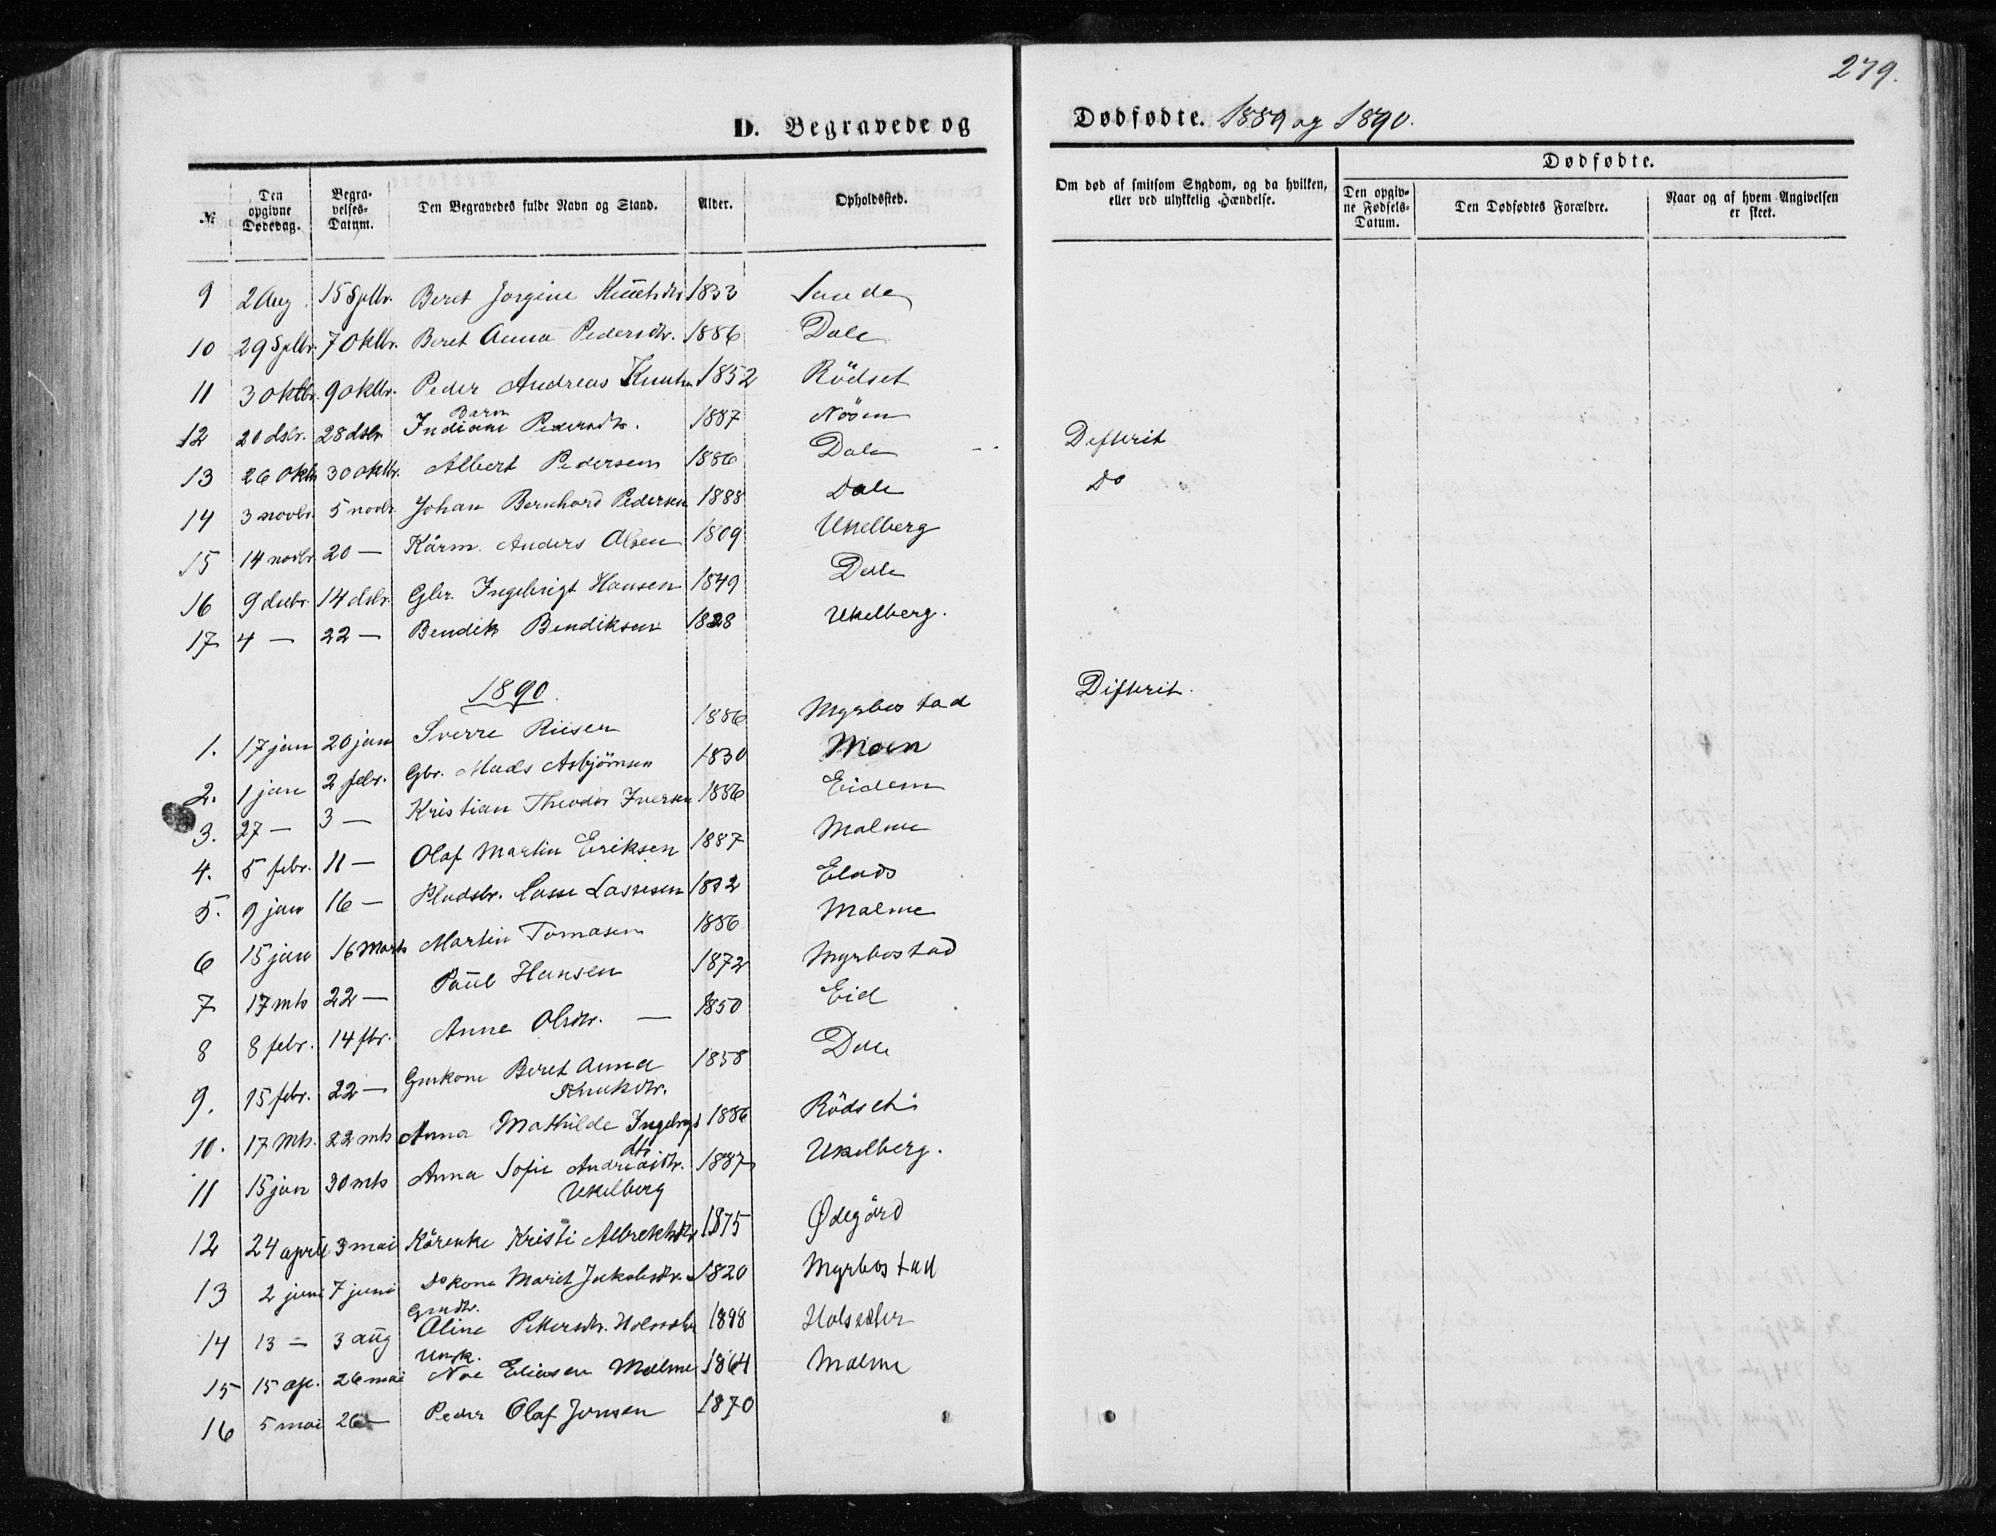 279.
D. Begravede og Dødfødte. 1889 og 1890.
№
Den opgivne Dødsdag.
Begravelses-Datum.
Den Begravedes fulde Navn og Stand.
Alder.
Opholdssted.
Om død af smitsom Sygdom, og da hvilken, eller ved ulykkelig Hændelse.
Dødfødte.
Den opgivne Fødsels-Datum.
Den Dødfødtes Forældre.
Naar og af hvem Angivelsen er skeet.
9 2 Aug. 15 Sptbr. Beret Jorgine Knutsdtr 1833 Sande
10 29 Sptbr. 7 Oktbr. Beret Anna Pedersdtr. 1886 Dale
11 3 Oktbr. 9 Oktbr. Peder Andreas Knuts 1852 Rödset
12 20 dsbr. 28 dsbr Barn Indiane Pedersdtr. 1887 Nösen Difterit
13 26 Oktb 30 Oktbr. Albert Pedersen 1886 Dale Do
14 3 novbr. 5 novbr. Johan Bernhard Pedersen 1888 Dale
15 14 novbr 20 — Kårm. Anders Olsen 1809 Ukelberg
16 9 dsbr. 14 dsbr. Gbr. Ingebrigt Hansen 1849 Dale
17 4 — 22 — Bendik Bendiksen 1828 Ukelberg.
1890.
1. 17 jan 20 jan Sverre Riisen 1886 Myrbostad Difterit.
2. 1 jan 2 febr. Gbr. Mads Asbjörnsen 1830 Moen
3. 27 — 3 — Kristian Theodor Iversen 1886 Eidem
4. 5 febr. 11 — Olaf Martin Eriksen 1887 Malme
5. 9 jan 16 — Pladsbr. Lasse Lassesen 1832 Elads
6 15 jan 16 Marts Martin Tomasen 1886 Malme
7 17 mts 22 — Paül Hansen 1872 Myrbostad
8 8 febr. 14 fbr. Anne Olsdtr. — 1850 Eid
9. 15 febr. 22 — Gmkone Beret Anna Knutsdtr. 1858 Dale
10. 17 Mts. 22 mts Anna Mathilde Ingebrigtsdtr 1886 Rödset
11 15 jan 30 mts Anna Sofie Andreasdtr. Ukelberg 1887 Ukelberg.
12 24 april 3 mai Kårenke Kristi Albrektsdtr 1875 Ødegård
13 2 juni 7 juni Do kona Marit Jakobsdtr. 1820 Myrbostad
14 13 — 3 aüg Gmdtr. Aline Pettersdtr. Holsæter 1898 Holsæter
15 15 ap. 26 mai Ungk. Noe Eliasen Malme 1864 Malme
16 5 mai 26 — Peder Olaf Jensen 1870